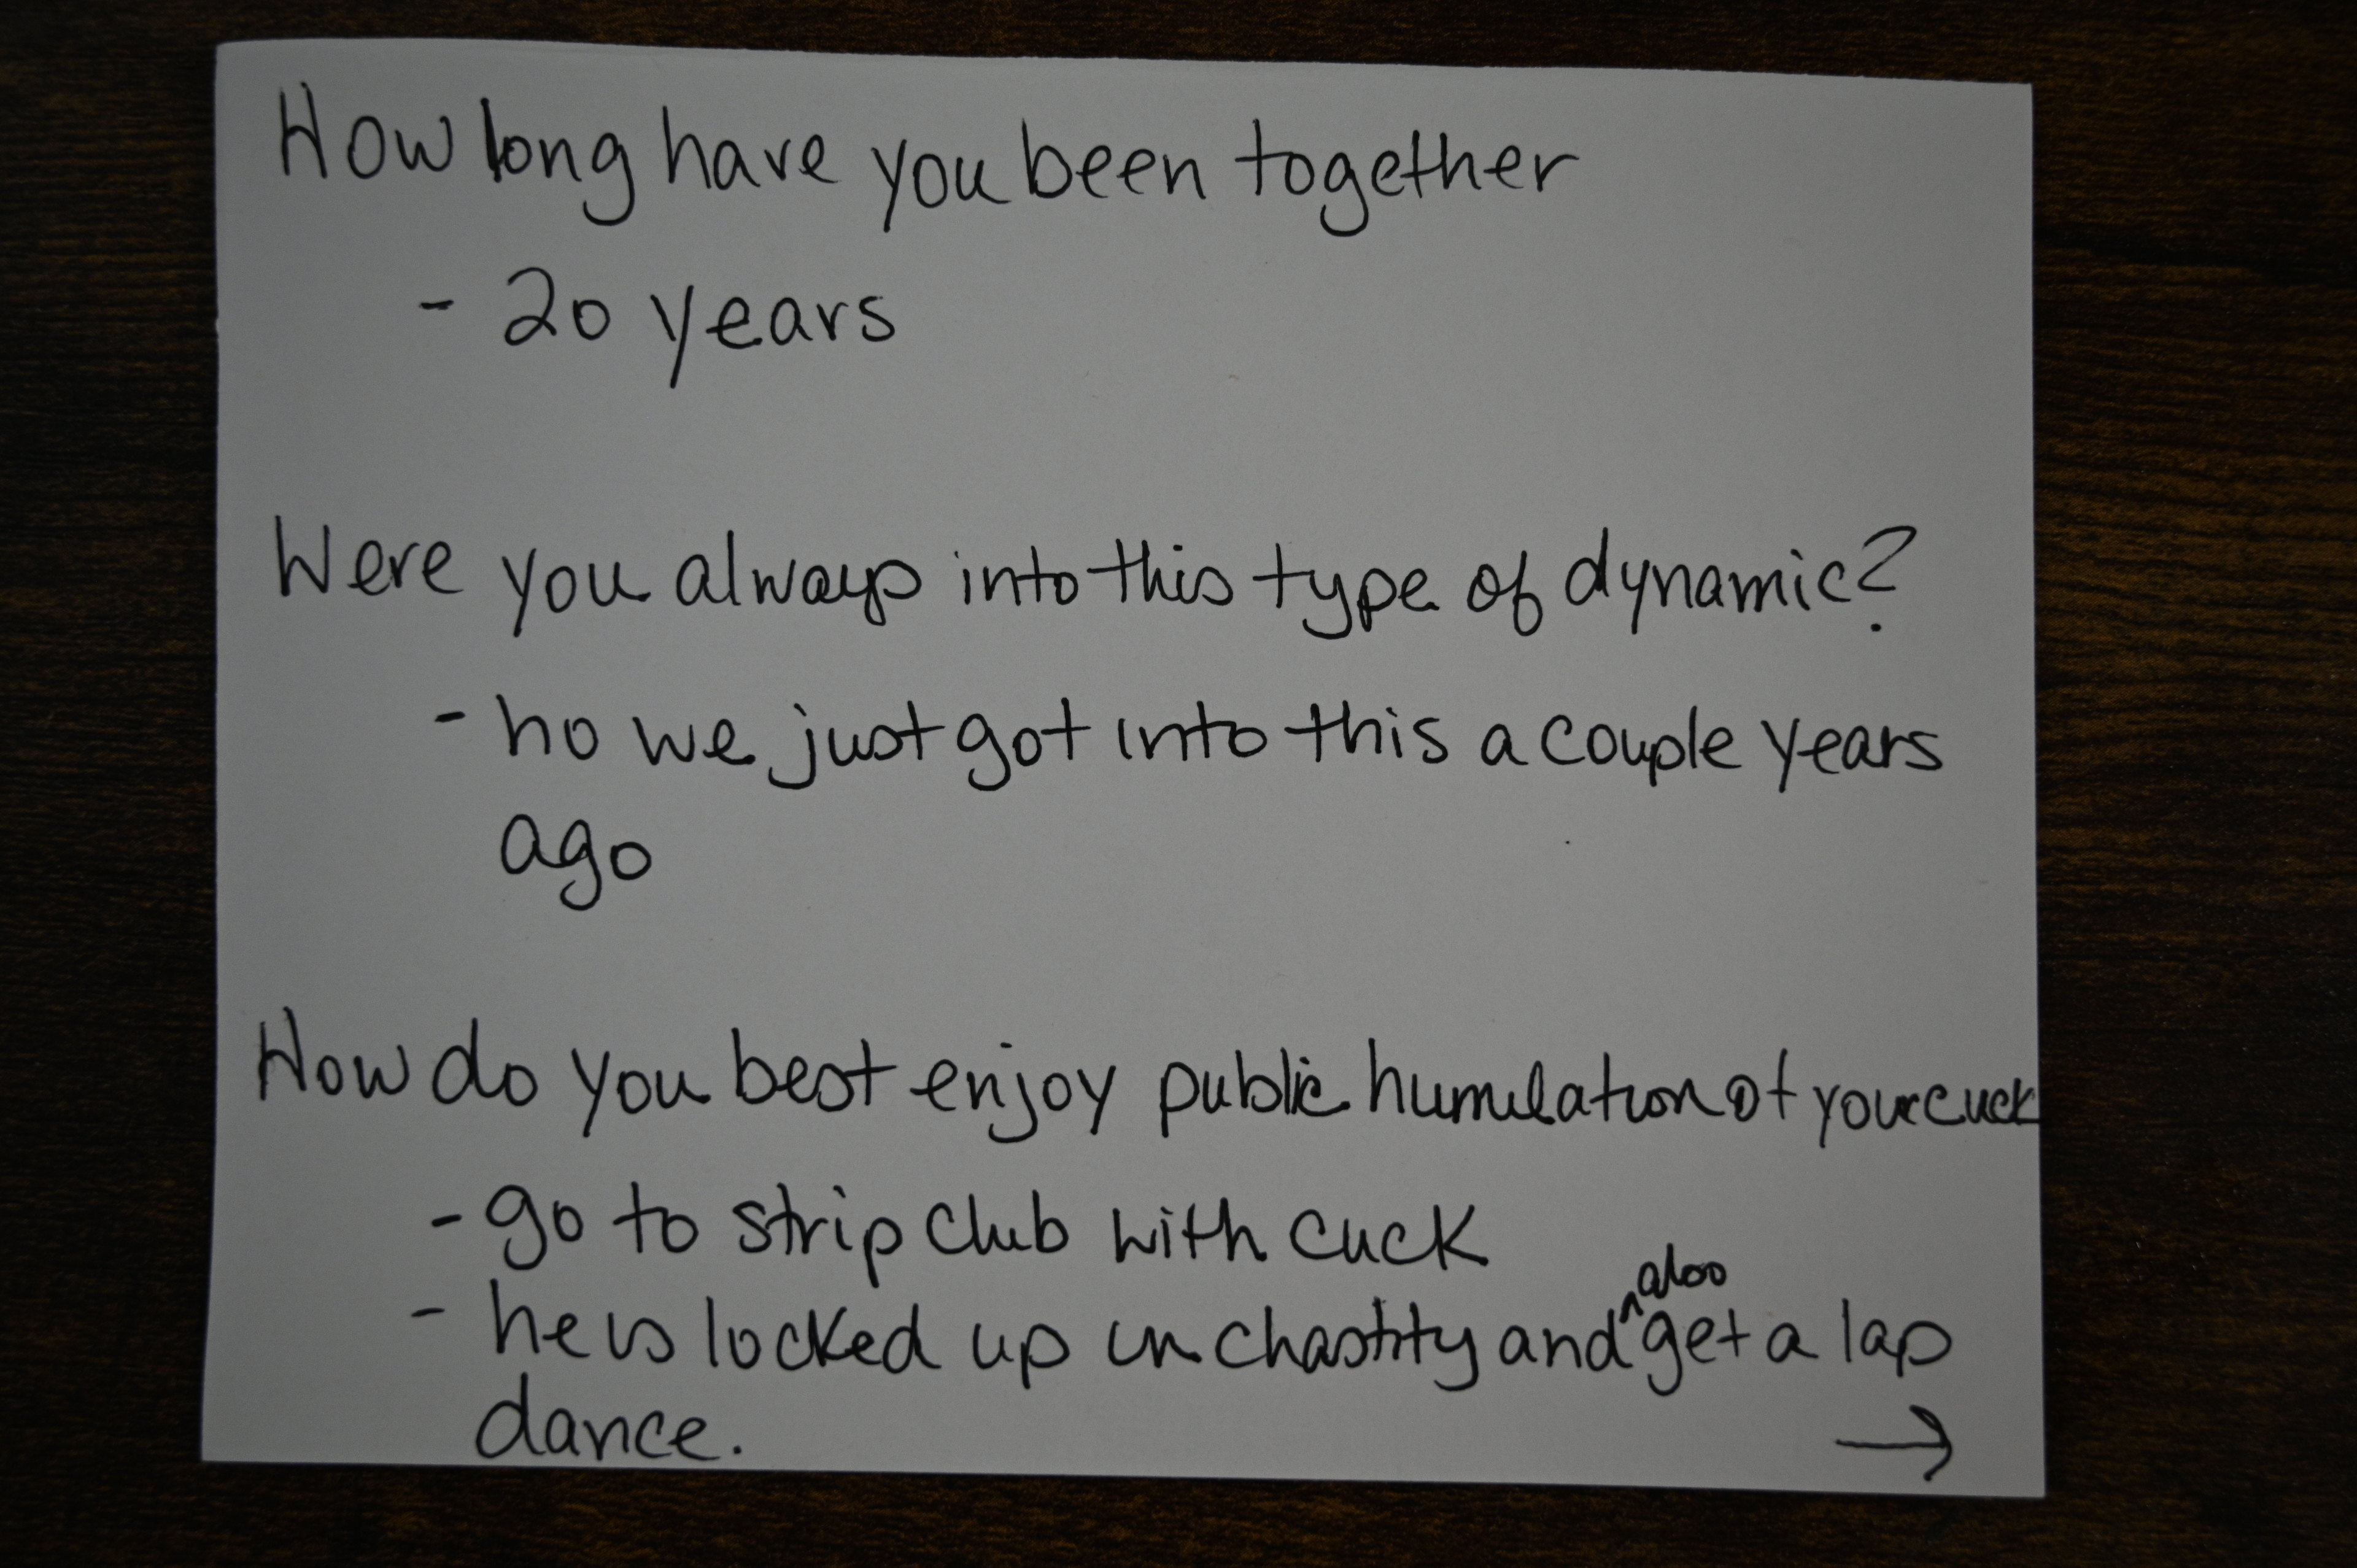 How long have you been together
- 20 years
Were you always into this type of dynamic?
- no we just got into this a couple years
ago
How do you best enjoy public humilation of your cuck
- go to strip club with cuck
- he is locked up in chastity and ^also get a lap
dance.
→